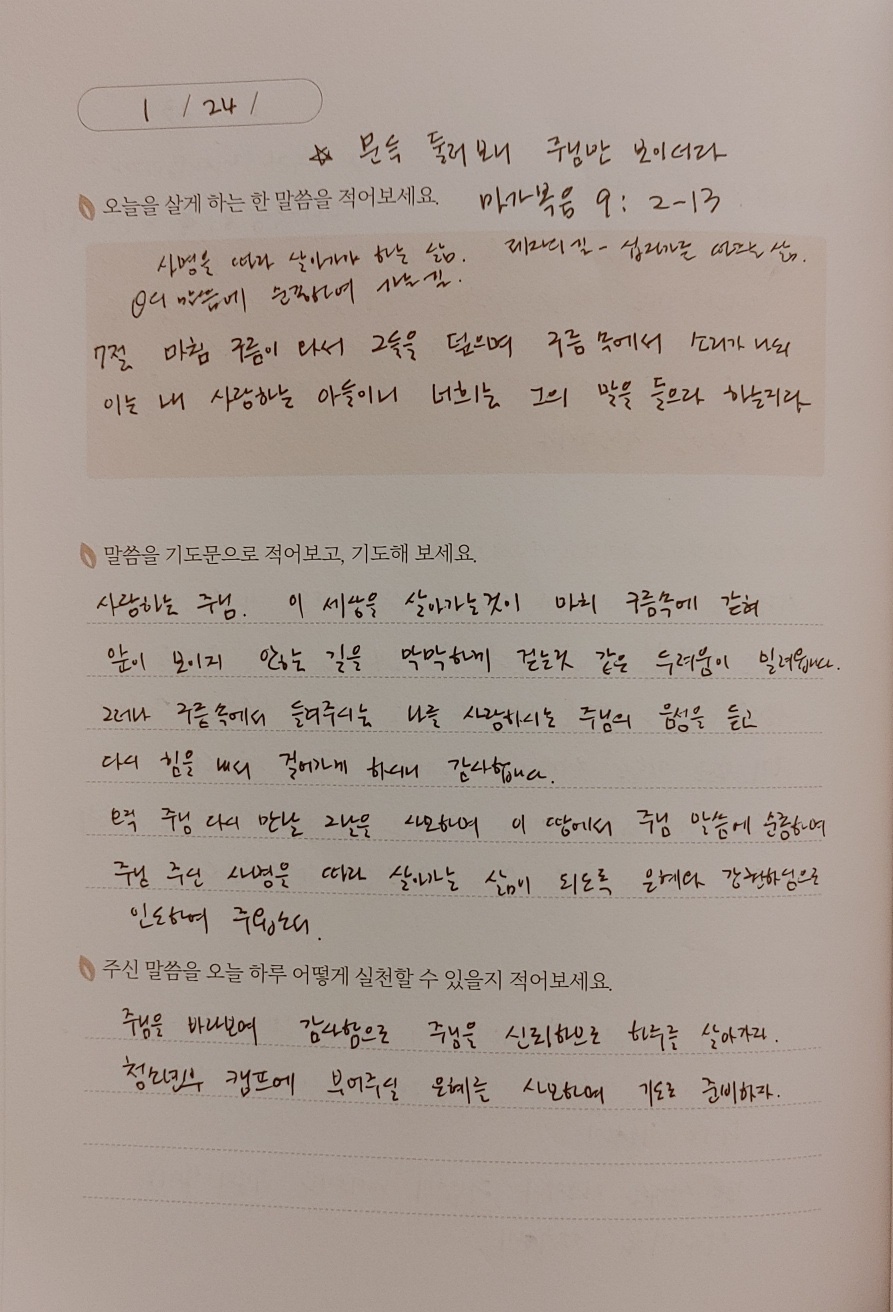 1 / 24 /
☆ 문득 둘러보니 주님만 보이더라
오늘을 살게 하는 한 말씀을 적어보세요. 마가복음 9: 2-13
사명을 따라 살아가야 하는 삶. 제자의 길 - 십자가를 지는 삶.
말씀에 순종하여 사는 길.
7절 마침 구름이 와서 그들을 덮으며 구름 속에서 소리가 나되
이는 내 사랑하는 아들이니 너희는 그의 말을 들으라 하는지라
말씀을 기도문으로 적어보고, 기도해 보세요.
사랑하는 주님. 이 세상을 살아가는것이 마치 구름속에 갇혀
앞이 보이지 않는 길을 막막하게 걷는것 같은 두려움이 밀려옵니다.
그러나 구름속에서 들려주시는 나를 사랑하시는 주님의 음성을 듣고
다시 힘을 내서 걸어가게 하시니 감사합니다.
오직 주님 다시 만날 그날을 사모하며 이 땅에서 주님 말씀에 순종하며
주님 주신 사명을 따라 살아가는 삶이 되도록 은혜와 강권하심으로
인도하여 주옵소서.
주신 말씀을 오늘 하루 어떻게 실천할 수 있을지 적어보세요.
주님을 바라보며 감사함으로 주님을 신뢰함으로 하루를 살아가리.
청소년부 캠프에 부어주실 은혜를 사모하며 기도로 준비하자.